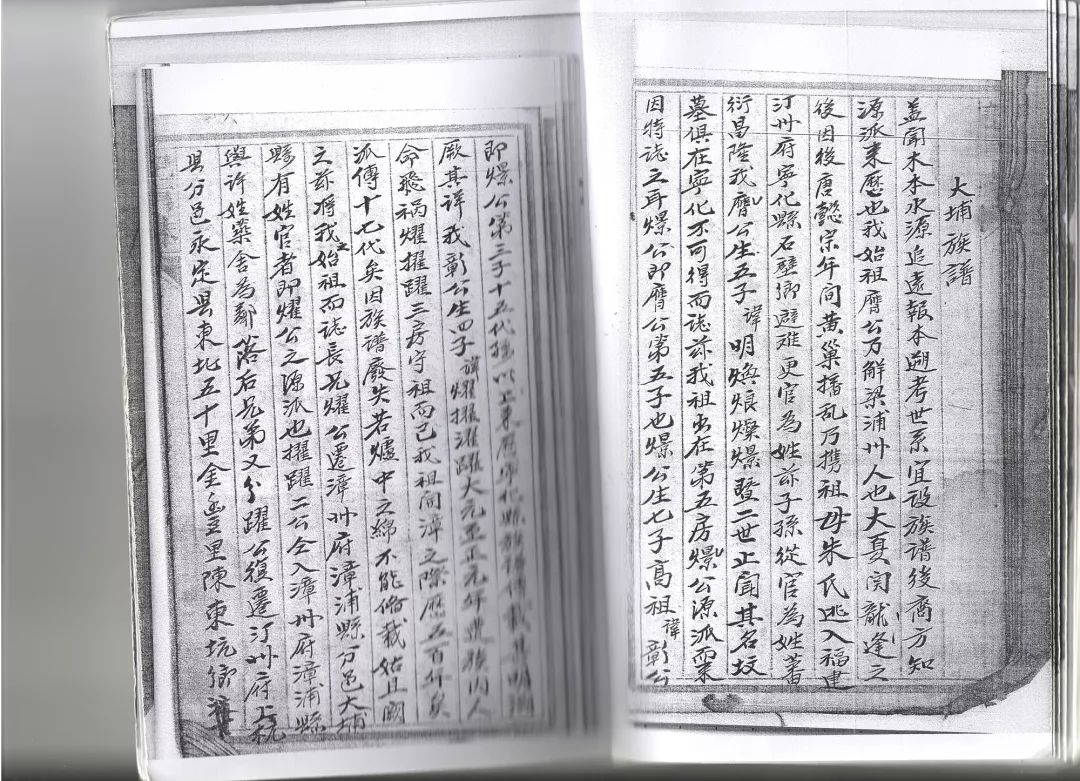 大埔族譜
盖闻木本水源追遠報本遡考世系宜设族谱後裔方知
源派来歷也我始祖膺公乃解梁浦卅人也大夏関龍逄之
後因後唐懿宗年间黄巢搔乱乃携祖母朱氏逃入福建
汀州府寧化縣石壁鄉避难更官為姓兹子孫從官為姓蕃
衍昌隆我膺公生五子諱明焕烺燦爆暨二世止闻其名坟
墓俱在寧化不可得而誌兹我祖出在第五房爆公源派而来
因特誌之耳爆公即膺公第五子也爆公生七子高祖諱彰公
即爆公第三子十五代孫以上来歷寧化縣族譜傳載其明洞
厥其详我彰公生四子諱耀擢濯躍大元至正元年遭族内人
命飛祸耀擢躍三房守祖而已我祖间漳之際歷五百年矣
派傳十七代矣因族谱廢失若爐中之綿不能俻载姑且阙
之兹将我始祖而誌長兄耀公遷漳州府漳浦縣分邑大埔
縣有姓官者即耀公之源派也擢躍二公仝入漳州府漳浦縣
與许姓藥舍為鄰落后兄弟又分躍公復遷汀州府上杭
县分邑永定县東北五十里金豐里陳東坑鄉